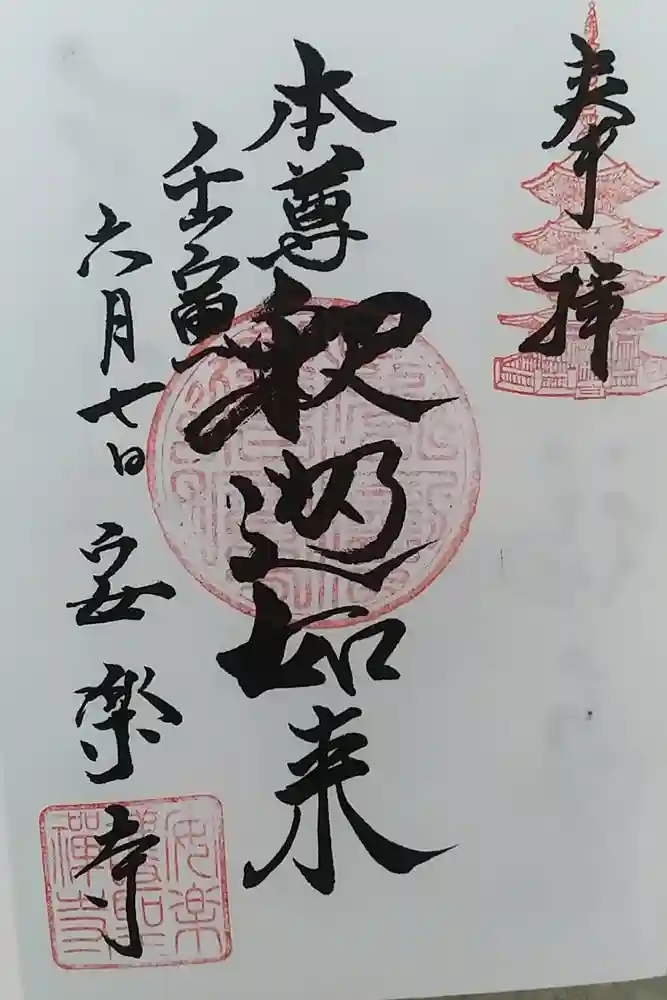 奉拝
本尊
釈迦如来
壬寅
六月七日
安楽寺
安楽
護聖
禅寺